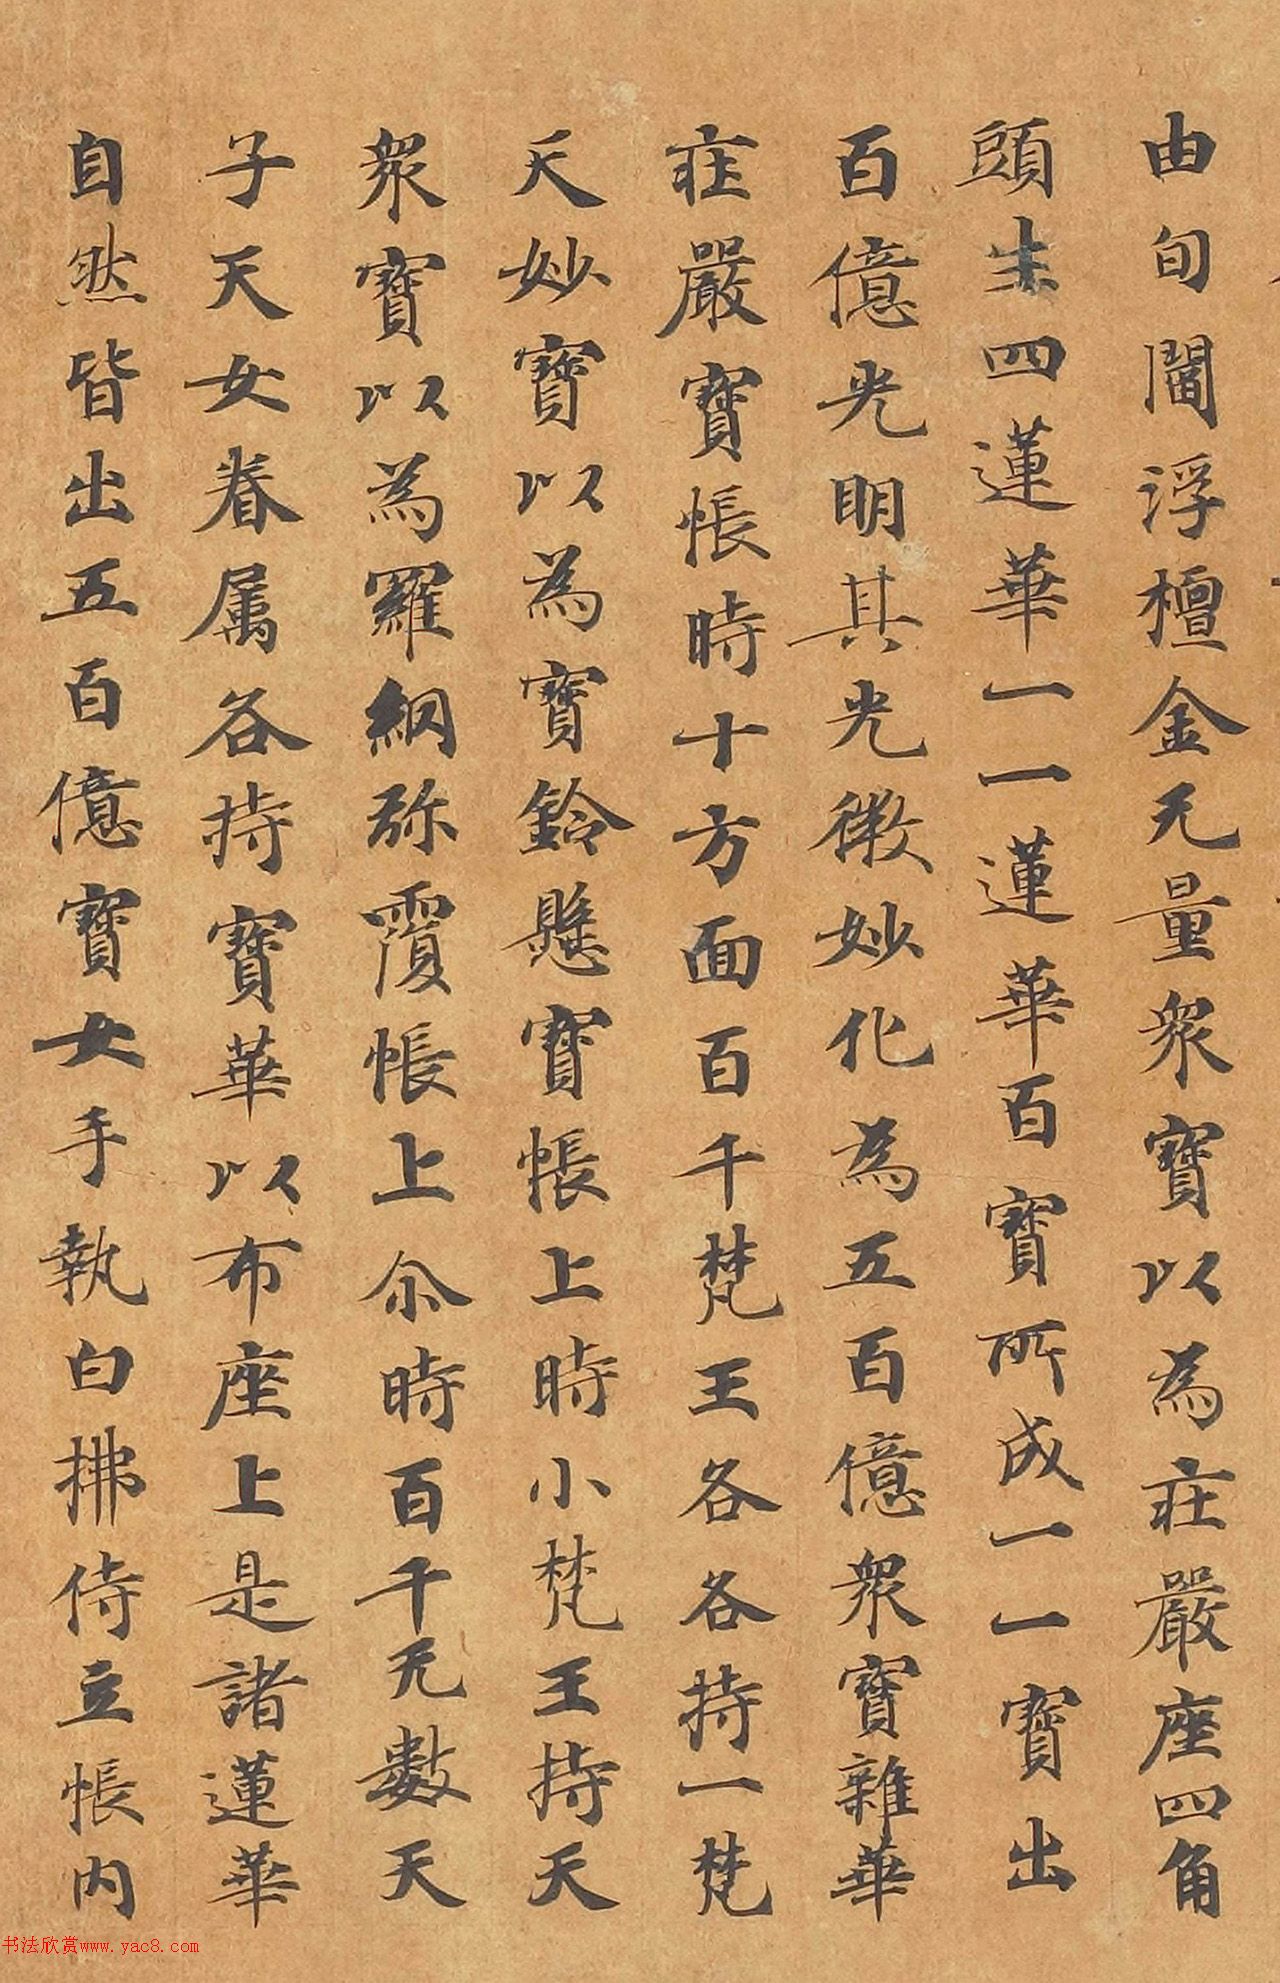 由旬閻浮檀金无量衆寶以為莊嚴座四角
頭生四蓮華一一蓮華百寶所成一一寶出
百億光明其光微妙化為五百億衆寶雜華
莊嚴寶帳時十方面百千梵王各各持一梵
天妙寶以為寶鈴懸寶帳上時小梵王持天
衆寶以為羅網弥覆帳上尒時百千无數天
子天女眷属各持寶華以布座上是諸蓮華
自然皆出五百億寶女手執白拂侍立帳内
书法欣赏www.yac8.com